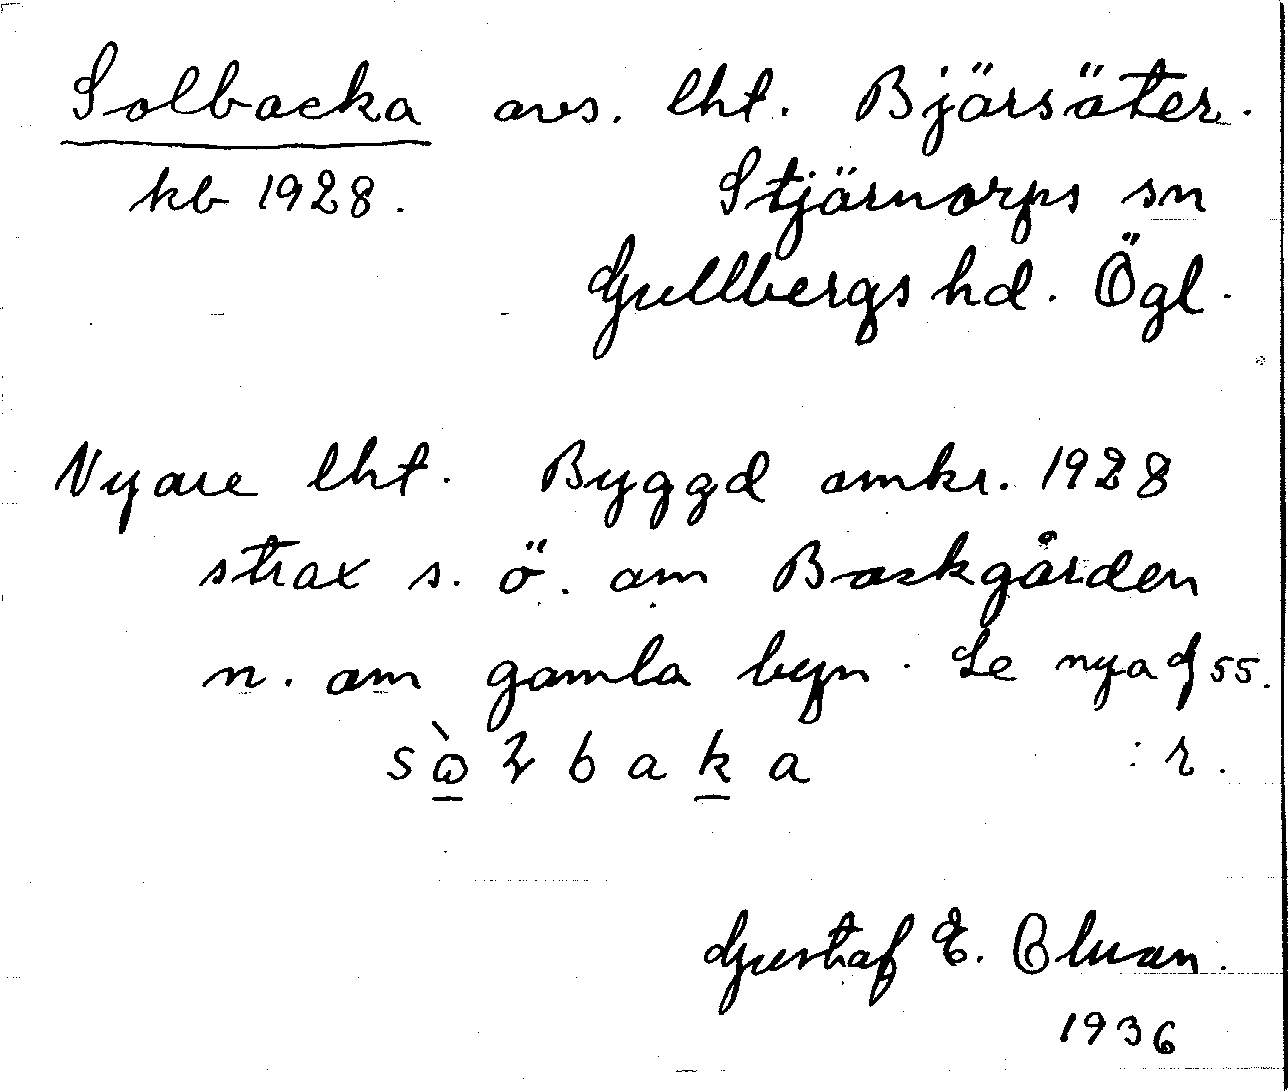 Solbacka avs. lht. Bjärsäter.
kb 1928. Stjärnorps sn
Gullbergs hd. Ögl.
Nyare lht. Byggd omkr. 1928
strax s. ö. om Backgården
n. om gamla byn. Se nya
sò̱ɫbaḵa : r.
Gustaf E.
1936